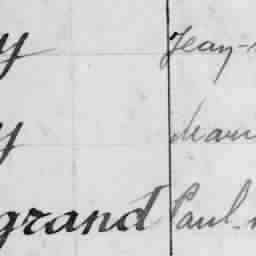 y Jean-
y Mauri
grand Paul-